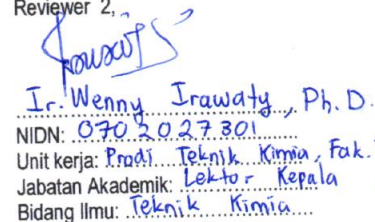 Reviewer 2,
Ir. Wenny Irawaty, Ph.D.
NIDN: 0702027301
Unit kerja: Prodi Teknik Kimia, Fak.
Jabatan Akademik: Lektor Kepala
Bidang Ilmu: Teknik Kimia